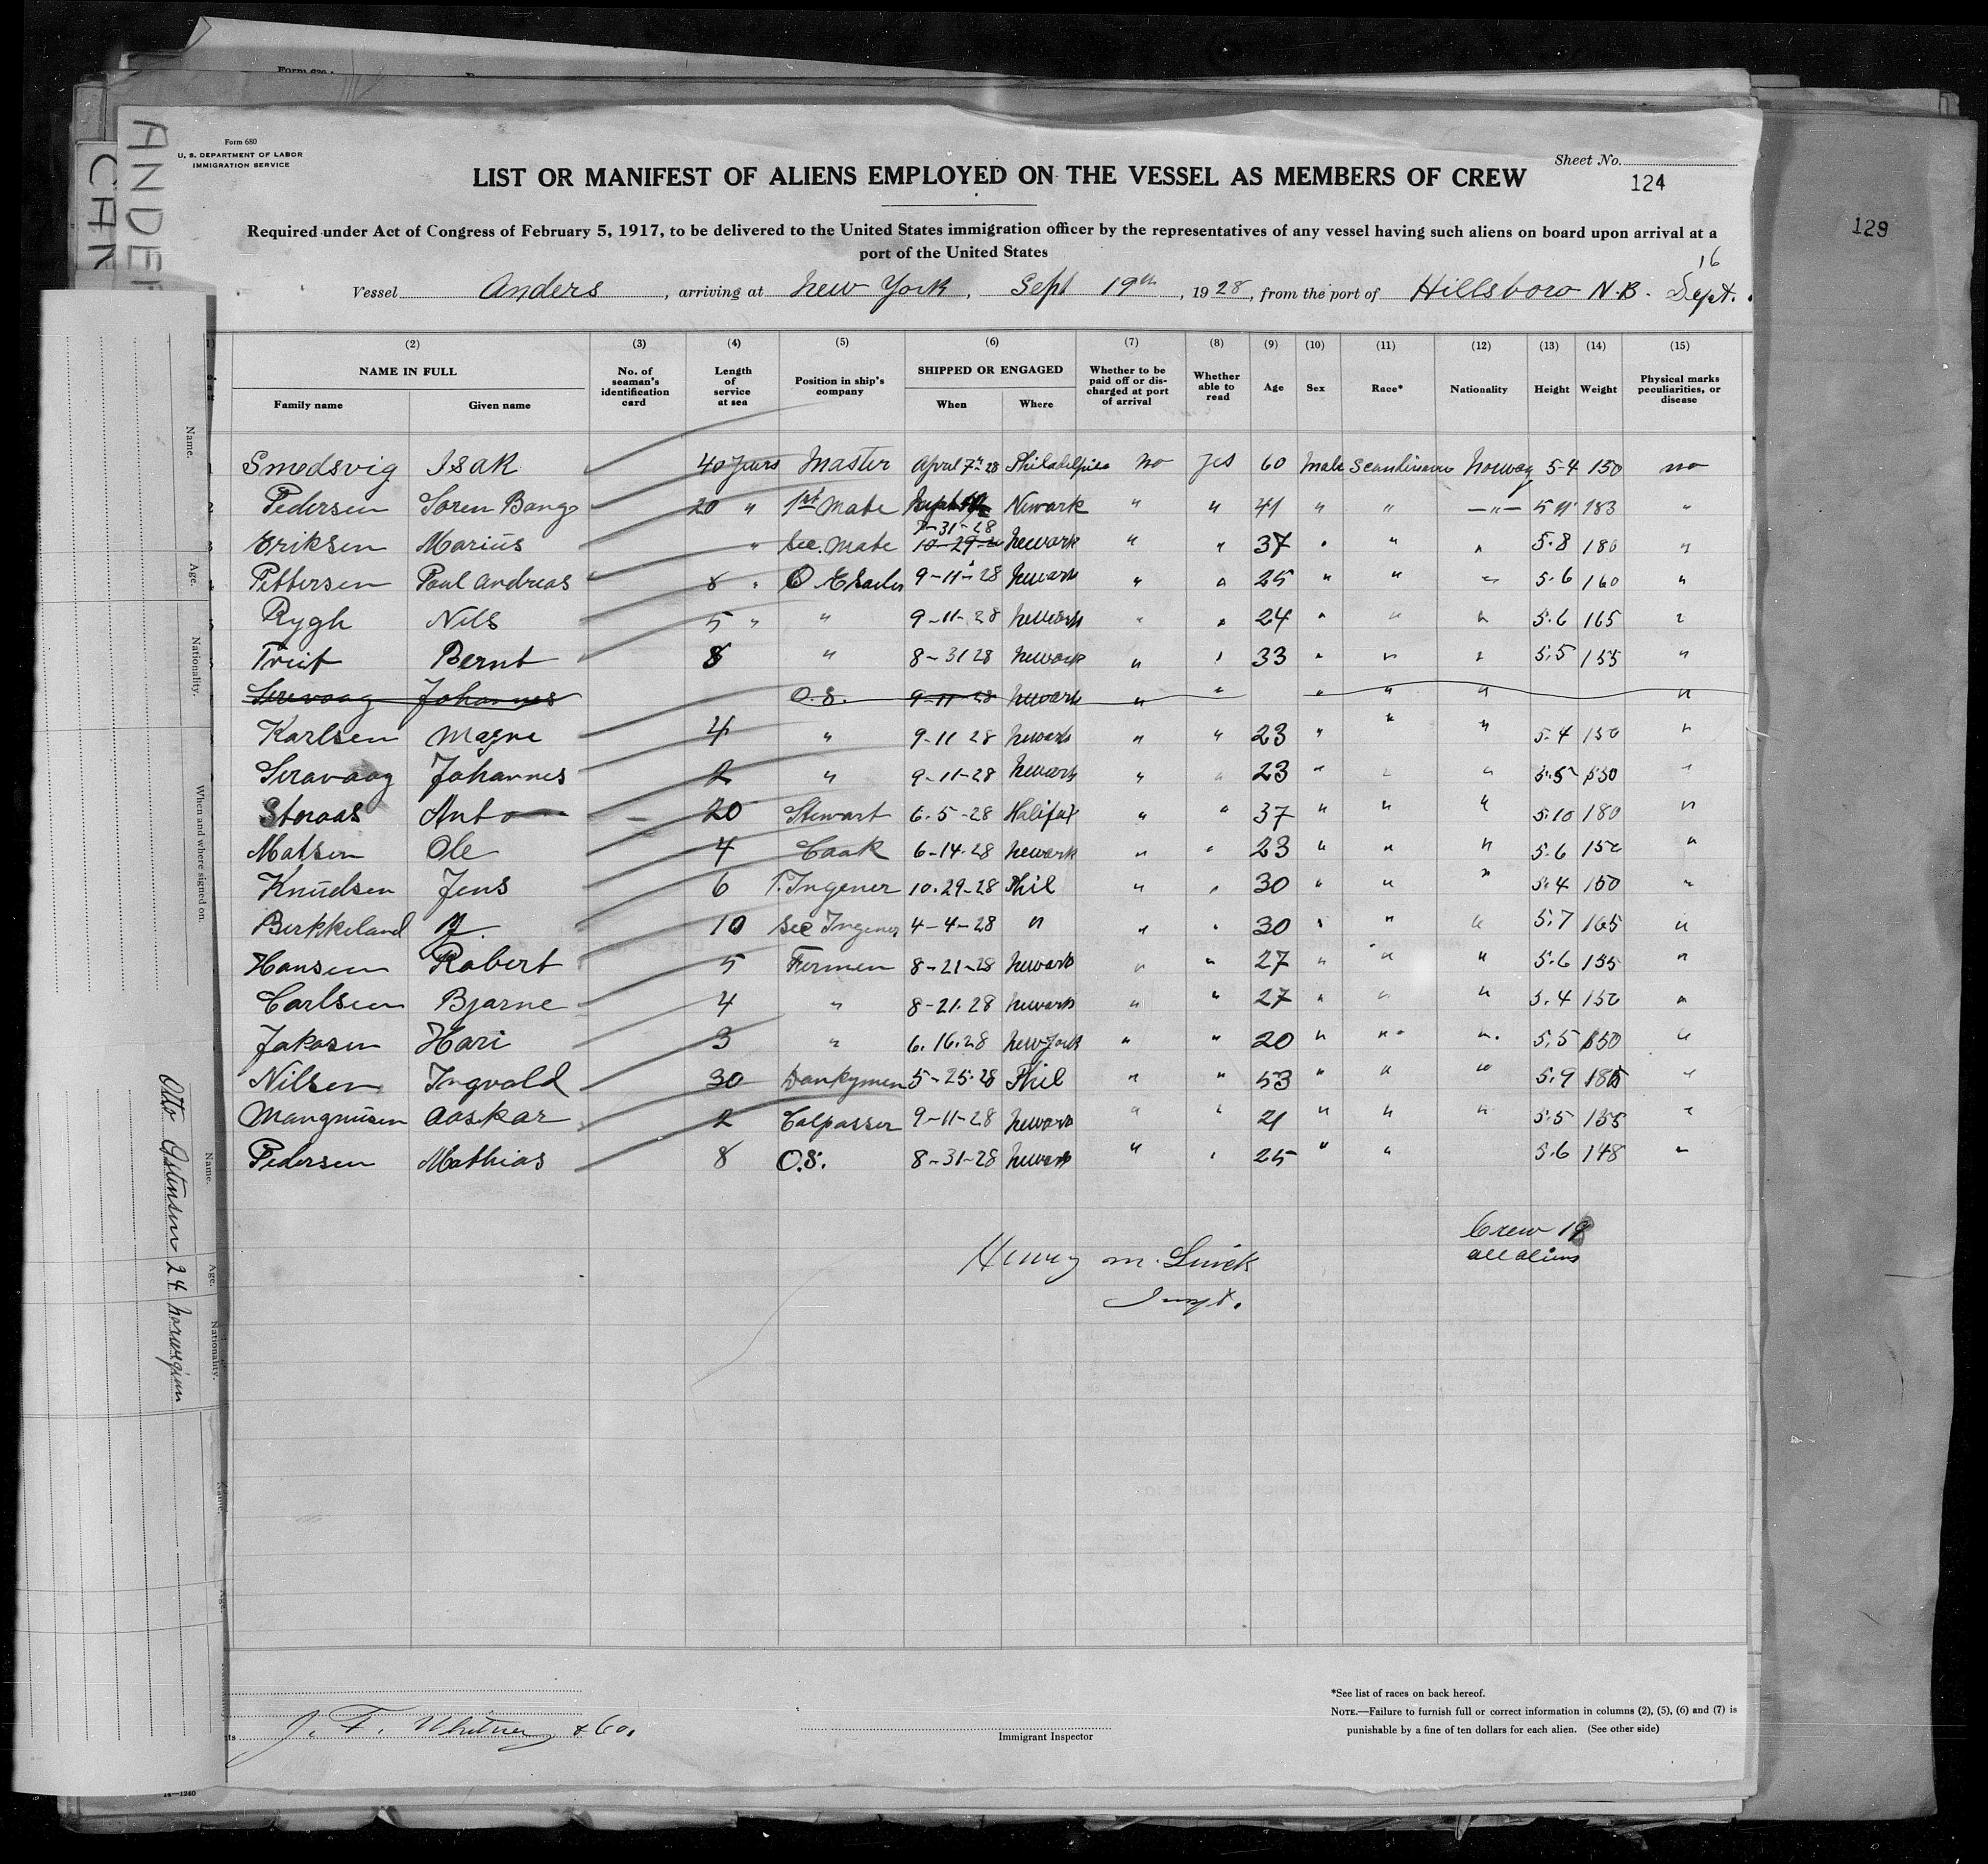 Form 680
U. S. DEPARTMENT OF LABOR
IMMIGRATION SERVICE
Sheet No.
124
129
LIST OR MANIFEST OF ALIENS EMPLOYED ON THE VESSEL AS MEMBERS OF CREW
Required under Act of Congress of February 5, 1917, to be delivered to the United States immigration officer by the representatives of any vessel having such aliens on board upon arrival at a
port of the United States
16
Vessel Anders, arriving at New York, Sept 19th, 1928, from the port of Hillsboro N.B. Sept.
(2) (3) (4) (5) (6) (7) (8) (9) (10) (11) (12) (13) (14) (15)
NAME IN FULL No. of seaman's identification card Length of service at sea Position in ship's company SHIPPED OR ENGAGED Whether to be paid off or discharged at port of arrival Whether able to read Age Sex Race* Nationality Height Weight Physical marks peculiarities, or disease
Family name Given name When Where
Smedsvig Isak 40 years Master April 7th 28 Philadelphia no yes 60 Male Scandinavian Norway 5-4 150 no
Pedersen Soren Bang 20 " 1st Mate Newark " " 41 " " —"— 183 "
7-31-28
Eriksen Marius " Sec. Mate 10-29-2 Newark " " 37 " " " 5.8 180 "
Pettersen Paul Andreas 8 " 9-11-28 Newark " " 25 " " " 5.6 160 "
Rygh Nils 5 " " 9-11-28 Newark " " 24 " " " 5.6 165 "
Bernt 8 " 8-31 28 Newark " " 33 " " " 5.5 155 "
Johannes O.S. 9-11-28 Newark " " " " " "
Karlsen Magne 4 " 9-11 28 Newark " " 23 " " " 5.4 150 "
Johannes 2 " 9-11-28 Newark " " 23 " " " 5.5 150 "
Storaas Anto 20 Stewart 6.5-28 Halifax " " 37 " " " 5.10 180 "
Matsen Ole 4 Cook 6-14-28 Newark " " 23 " " " 5.6 150 "
Knudsen Jens 6 Ingener 10.29-28 Phil " " 30 " " " 5.4 150 "
Berkkeland 10 Sec Ingener 4-4-28 " " " 30 " " " 5.7 165 "
Hansen Robert 5 Firmen 8-21-28 Newark " " 27 " " " 5.6 155 "
Carlsen Bjarne 4 " 8-21-28 Newark " " 27 " " " 5.4 150 "
Jakosen Hari 3 " 6.16.28 New York " " 20 " " " 5.5 150 "
Nilsen Ingvald 30 Dankymen 5-25-28 Phil " " 53 " " " 5.9 185 "
Mangnusen Aaskar 2 Colpasser 9-11-28 Newark " " 21 " " " 5.5 155 "
Pedersen Mathias 8 O.S. 8-31-28 Newark " " 25 " " 5.6 148 "
Crew 19
all aliens
Henry M.
Inspt.
J. F. Whitney & Co.
Immigrant Inspector
*See list of races on back hereof.
NOTE.—Failure to furnish full or correct information in columns (2), (5), (6) and (7) is
punishable by a fine of ten dollars for each alien. (See other side)
14—1240
Name. Age. Nationality. When and where signed on.
Name. Age. Nationality.
Otto 24 norwegian
Name.
Age.